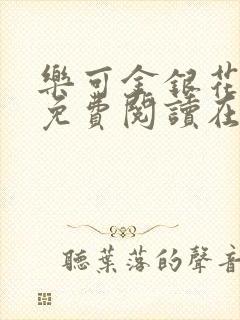 樂可金銀花
免費閱讀在
聽葉落的聲音